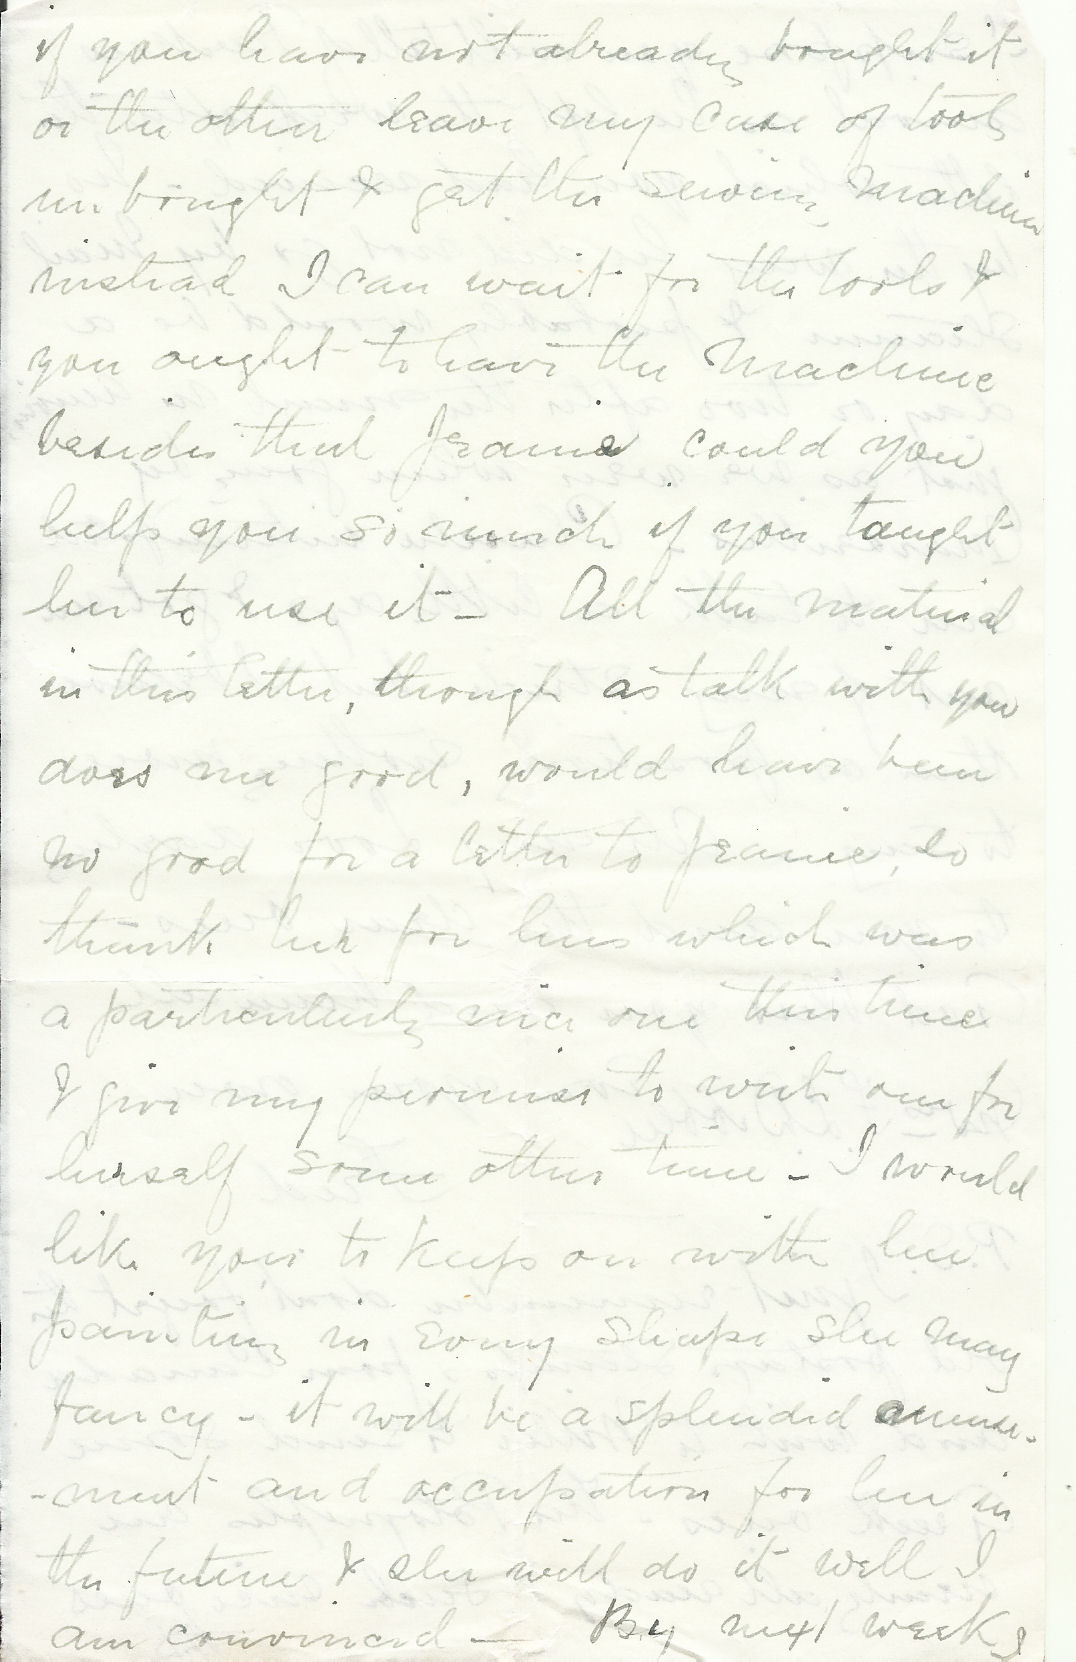 if you have not already bought it
or the other leave my case of tools
un bought & get the sewing machine
instead I can wait for the tools &
you ought to have the machine
besides that Jeanie could you
help you so much if you taught
her to use it - All the material
in this letter, though as talk with you
does me good, would have been
no good for a letter to Jeanie, so
thank her for hers which was
a particularly nice one this time
& give my promise to write one for
herself some other time - I would
like you to keep on with her
painting in any shape she may
fancy - it will be a splendid amuse-
-ment and occupation for her in
the future & she will do it well I
am convinced - By next week